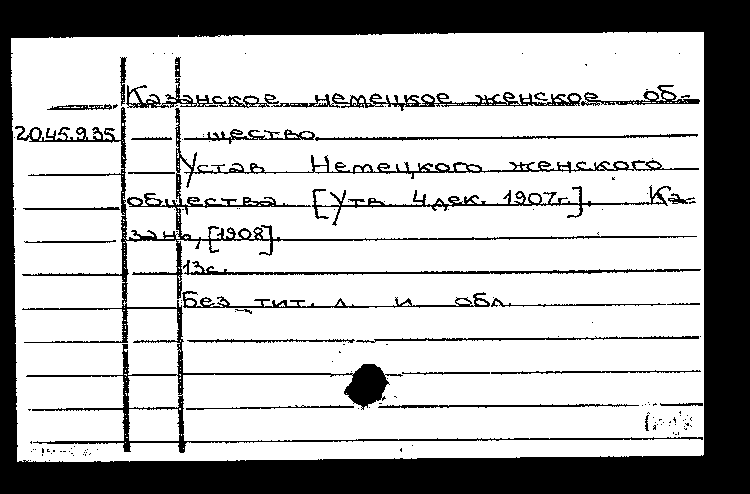 Казанское немецкое женское об-
20.45.9.35 щество.
Устав Немецкого женского
общества. [Утв. 4 дек. 1907г.]. Ка-
зань, [1908].
13с.
Без тит. л. и обл.